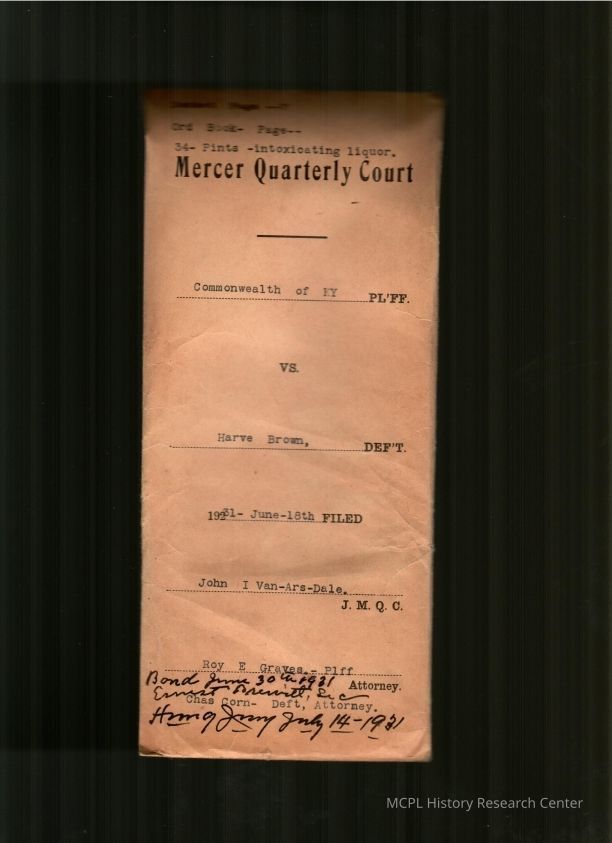 Page --
Ord Book- Page--
34- Pints -intoxicating liquor.
Mercer Quarterly Court
Commonwealth of KY PL'FF.
VS.
Harve Brown, DEF'T.
19231- June-18th FILED
John I Van-Ars-Dale.
J. M. Q. C.
Roy E Graves.- Plff
Bond June 30th 1931 Attorney.
Ernest Brewitt, Sec
Chas Corn- Deft, Attorney.
Hung Jury July 14-1931
MCPL History Research Center